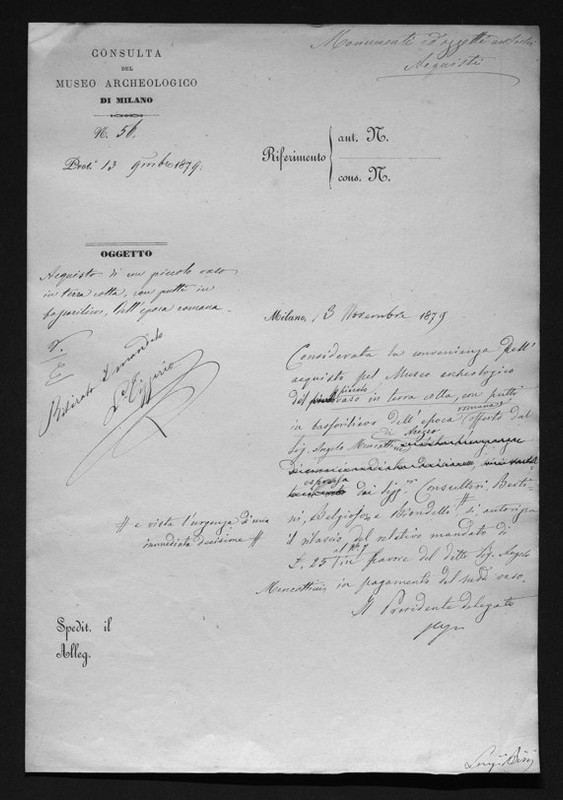 Monumenti ed oggetti antichi
Acquisti
CONSULTA
DEL
MUSEO ARCHEOLOGICO
DI MILANO
N. 56.
Prot.
13
9mbre 1879.
Riferimento
ant. N.
cons. N.
OGGETTO
Acquisto di un piccolo vaso
in terra cotta, con putti in
bassorilievo, dell'epoca romana.
Ritirato il mandato
Milano, 13 Novembre 1879
Considerata la convenienza dell'
acquisto pel Museo archeologico
del piccolo vaso in terra cotta, con putti
in bassorilievo dell'epoca romana offerto dal
Sig. Angelo Mencattini di Arezzo
espressa dai Sigg.ri Consultori, Berti-
ni, Belgiojoso e Biondelli # si autorizza
il rilascio del relativo mandato di
L. 25 al N. 7 in favore del detto Sig. Angelo
Mencattini in pagamento del sudd. vaso.
Il Presidente delegato
# e vista l'urgenza d'una
immediata decisione #
Spedit. il
Alleg.
Luigi Bisi